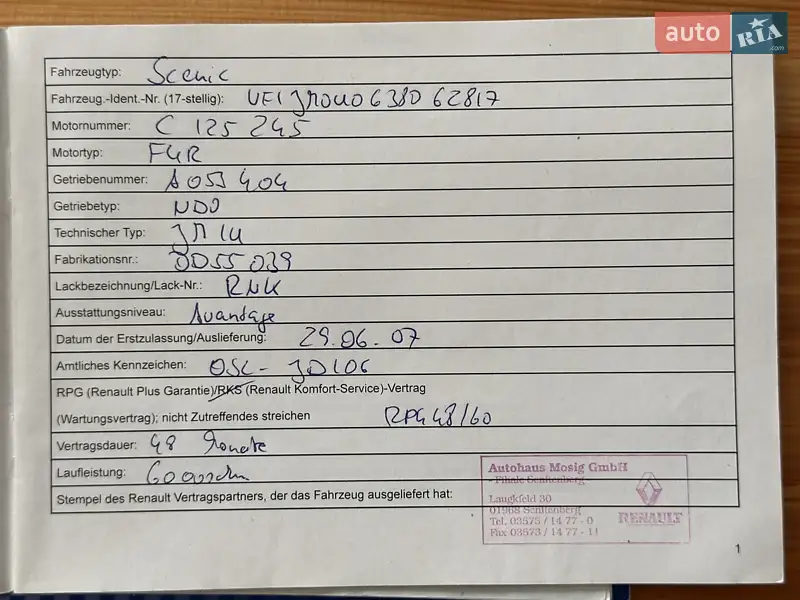 auto RIA.com
Fahrzeugtyp: Scenic
Fahrzeug.-Ident.-Nr. (17-stellig): VF1JM0U0638062817
Motornummer: C 125 245
Motortyp: F4R
Getriebenummer: A053 404
Getriebetyp: ND0
Technischer Typ: JM1U
Fabrikationsnr.: D055 039
Lackbezeichnung/Lack-Nr.: RNK
Ausstattungsniveau: Avantage
Datum der Erstzulassung/Auslieferung: 29.06.07
Amtliches Kennzeichen: OSL - JD106
RPG (Renault Plus Garantie)/RKS (Renault Komfort-Service)-Vertrag
(Wartungsvertrag); nicht Zutreffendes streichen RPG 48/60
Vertragsdauer: 48 Monate
Laufleistung: 60000km
Stempel des Renault Vertragspartners, der das Fahrzeug ausgeliefert hat:
Autohaus Mosig GmbH
- Filiale Senftenberg
Laugkfeld 30
01968 Senftenberg
Tel. 03573 / 14 77 - 0
Fax 03573 / 14 77 - 11
RENAULT
1